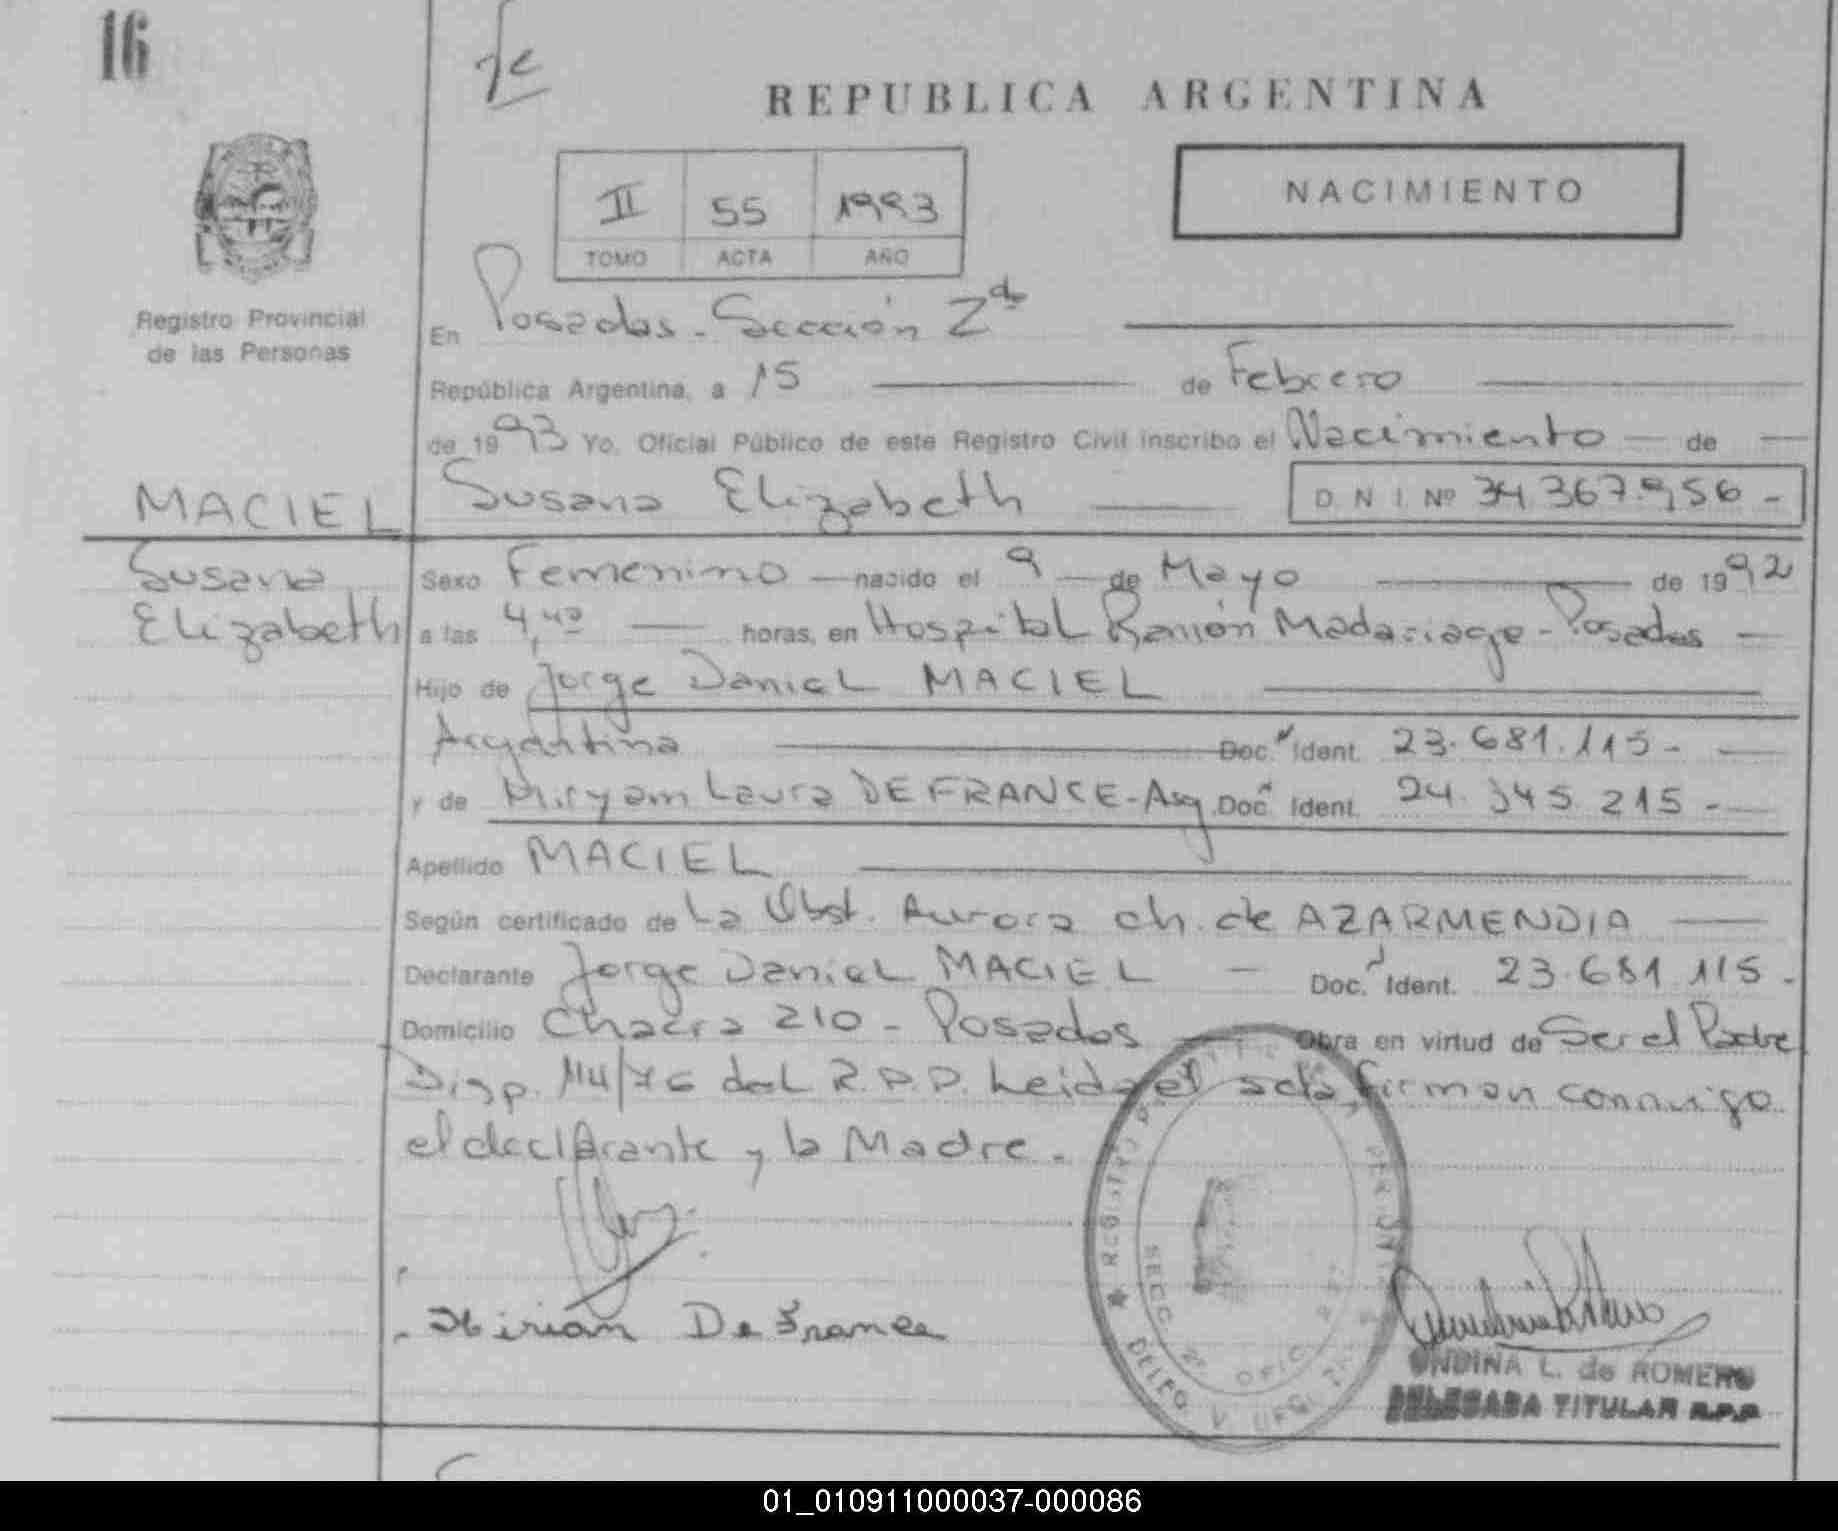 16
REPUBLICA ARGENTINA
II 55 1993
TOMO ACTA AÑO
NACIMIENTO
Registro Provincial
de las Personas
En Posadas - Sección 2da
República Argentina, a 15 de Febrero
de 1993 Yo, Oficial Público de este Registro Civil inscribo el Nacimiento de
MACIEL Susana Elizabeth D N I Nº 34.367.956 -
Susana
Elizabeth
Sexo Femenino nacido el 9 de Mayo de 1992
a las 4,40 horas, en Hospital Ramón Madariaga - Posadas
Hijo de Jorge Daniel MACIEL
Argentina Doc. Ident. 23.681.115 -
y de Miryam Laura DE FRANCE - Arg. Doc. Ident. 24. 345 215 -
Apellido MACIEL
Según certificado de La Obst. Aurora ch. de AZARMENDIA
Declarante Jorge Daniel MACIEL - Doc. Ident. 23.681.115 -
Domicilio Chacra 210 - Posadas Obra en virtud de Ser el Padre
Disp. 114/76 del R.P.P. Leida el acta, firman conmigo
el declarante y la Madre.
Mirian De France
SECC 2ª OFIC
ONDINA L. de ROMERO
DELEGADA TITULAR R.P.P.
01_010911000037-000086